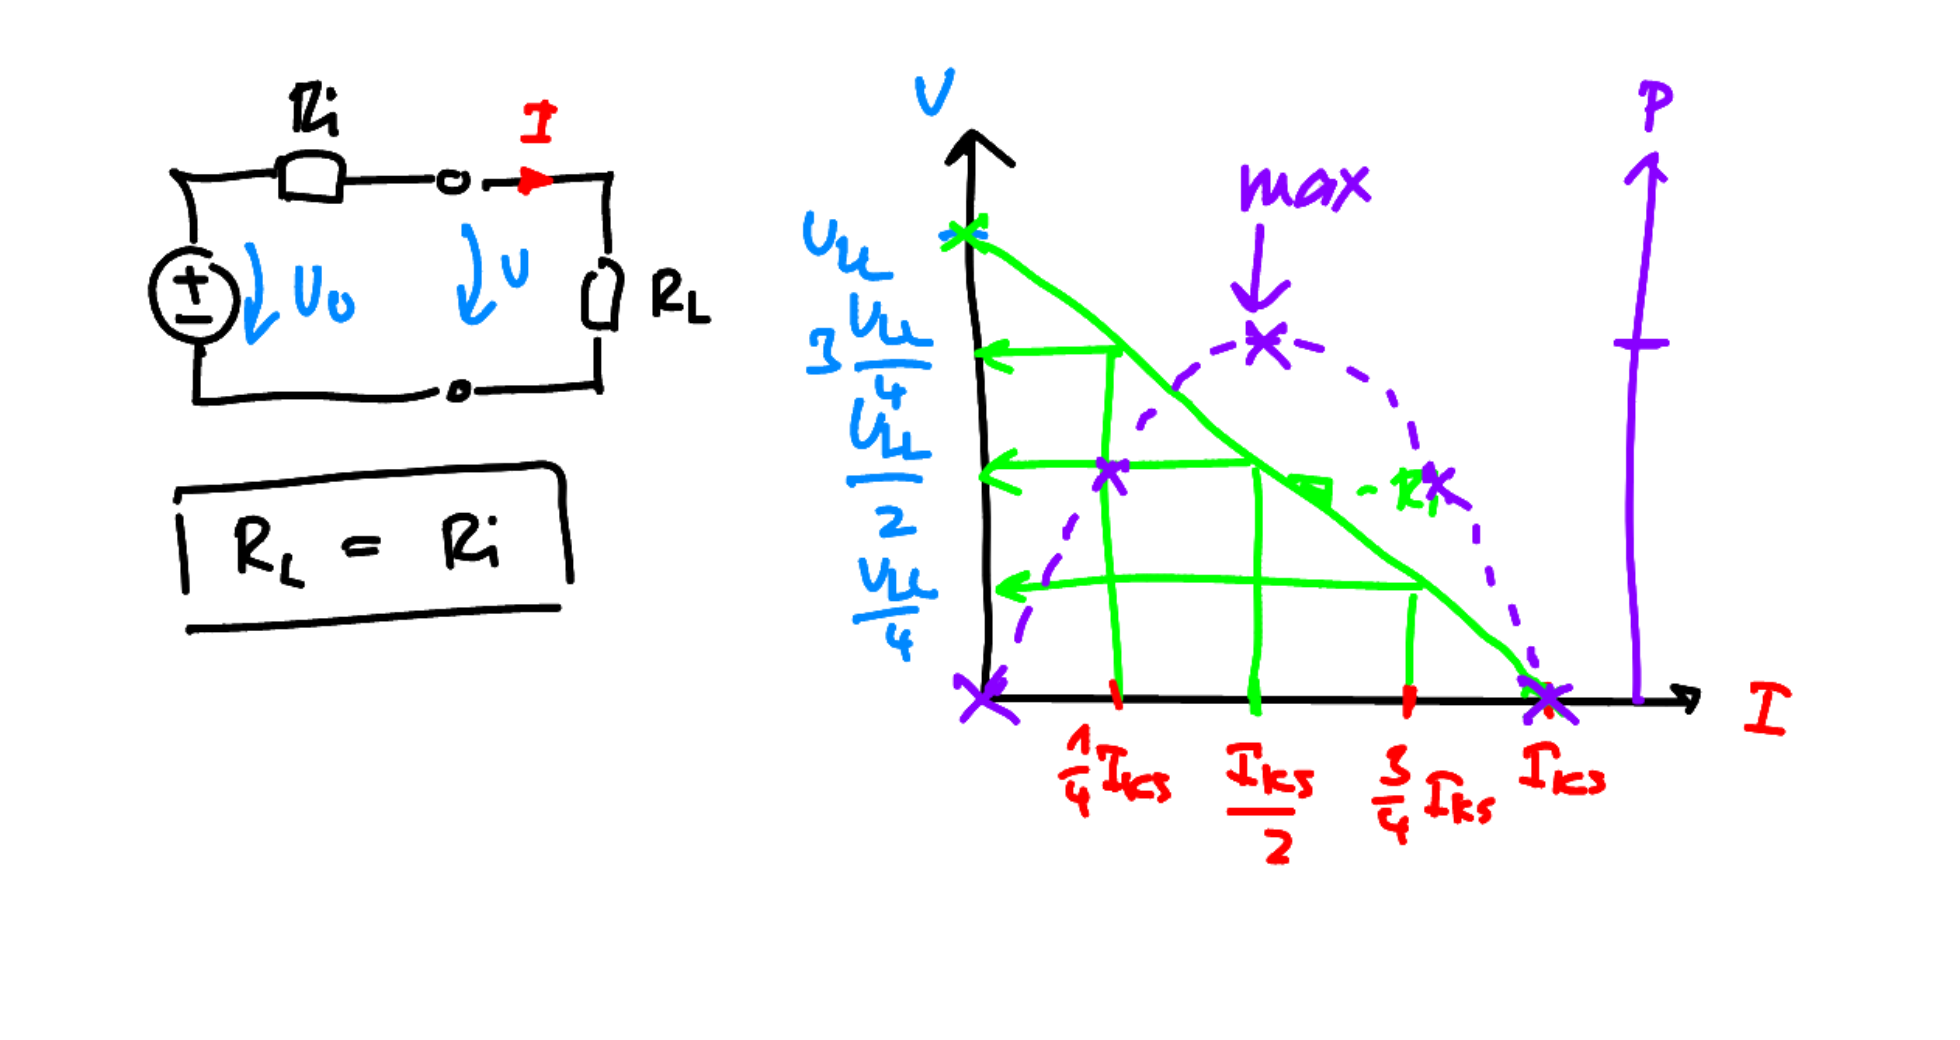 Ri
I
+
−
U0
U
RL
RL = Ri
U
P
max
ULL
3 ULL/4
ULL/2
- Ri
ULL/4
I
1/4 IKS
IKS/2
3/4 IKS
IKS